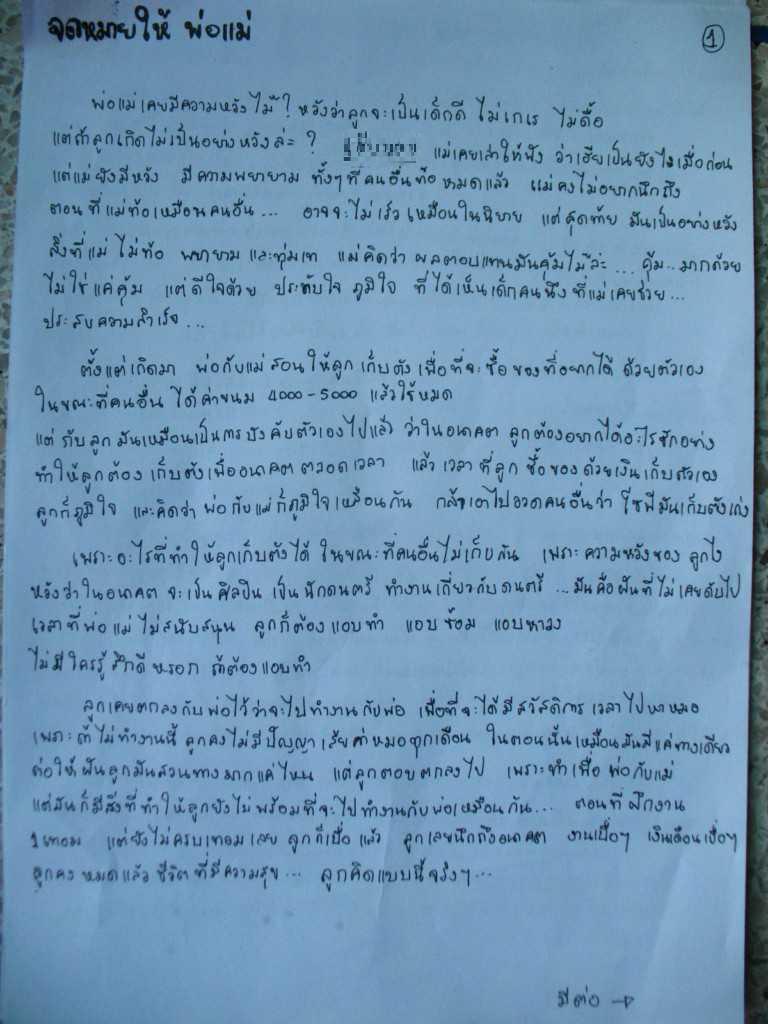 จดหมายให้ พ่อแม่
1
พ่อแม่เคยมีความหวังไม๊ ? หวังว่าลูกจะเป็นเด็กดี ไม่เกเร ไม่ดื้อ
แต่ถ้าลูกเกิดไม่เป็นอย่างหวังล่ะ ? แม่เคยเล่าให้ฟัง ว่าเฮียเป็นยังไงเมื่อก่อน
แต่แม่ยังมีหวัง มีความพยายาม ทั้งๆที่คนอื่นท้อหมดแล้ว แม่คงไม่อยากนึกถึง
ตอนที่แม่ท้อเหมือนคนอื่น... อาจจะไม่เร็วเหมือนในนิยาย แต่สุดท้าย มันเป็นอย่างหวัง
สิ่งที่แม่ ไม่ท้อ พยายาม และทุ่มเท แม่คิดว่า ผลตอบแทนมันคุ้มไม๊ล่ะ ... คุ้ม..มากด้วย
ไม่ใช่แค่คุ้ม แต่ดีใจด้วย ประทับใจ ภูมิใจ ที่ได้เห็นเด็กคนนึง ที่แม่เคยช่วย...
ประสบความสำเร็จ...
ตั้งแต่เกิดมา พ่อกับแม่สอนให้ลูกเก็บตัง เพื่อที่จะซื้อของที่อยากได้ ด้วยตัวเอง
ในขณะที่คนอื่น ได้ค่าขนม 4000-5000 แล้วใช้หมด
แต่กับลูกมันเหมือนเป็นการบังคับตัวเองไปแล้ว ว่าในอนาคต ลูกต้องอยากได้อะไรซักอย่าง
ทำให้ลูกต้องเก็บตังเพื่ออนาคตตลอดเวลา แล้วเวลาที่ลูก ซื้อของด้วยเงินเก็บตัวเอง
ลูกก็ภูมิใจ และคิดว่า พ่อกับแม่ก็ภูมิใจเหมือนกัน กล้าเอาไปอวดคนอื่นว่า มันเก็บตังเก่ง
เพราะอะไรที่ทำให้ลูกเก็บตังได้ ในขณะที่คนอื่นไม่เก็บกัน เพราะความหวังของ ลูกไง
หวังว่าในอนาคต จะเป็นศิลปิน เป็นนักดนตรี ทำงานเกี่ยวกับดนตรี ...มันคือฝันที่ไม่เคยดับไป
เวลาที่พ่อแม่ ไม่สนับสนุน ลูกก็ต้องแอบทำ แอบซ้อม แอบหาวง
ไม่มีใครรู้สึกดีหรอก ถ้าต้องแอบทำ
ลูกเคยตกลงกับพ่อไว้ว่าจะไปทำงานกับพ่อ เพื่อที่จะได้มีสวัสดิการ เวลาไปหาหมอ
เพราะถ้าไม่ทำงานนี้ ลูกคงไม่มีปัญญาเสียค่าหมอทุกเดือน ในตอนนั้นเหมือนมันมีแค่ทางเดียว
ต่อให้ฝันลูกมันสวนทางมากแค่ไหน แต่ลูกตอบตกลงไป เพราะทำเพื่อพ่อกับแม่
แต่มันก็มีสิ่งที่ทำให้ลูกยังไม่พร้อมที่จะไปทำงานกับพ่อเหมือนกัน... ตอนที่ฝึกงาน
1เทอม แต่ยังไม่ครบเทอมเลย ลูกก็เบื่อแล้ว ลูกเลยนึกถึงอนาคต งานเบื่อๆ เงินเดือนเบื่อๆ
ลูกคงหมดแล้ว ชีวิตที่มีความสุข... ลูกคิดแบบนี้จริงๆ...
มีต่อ →